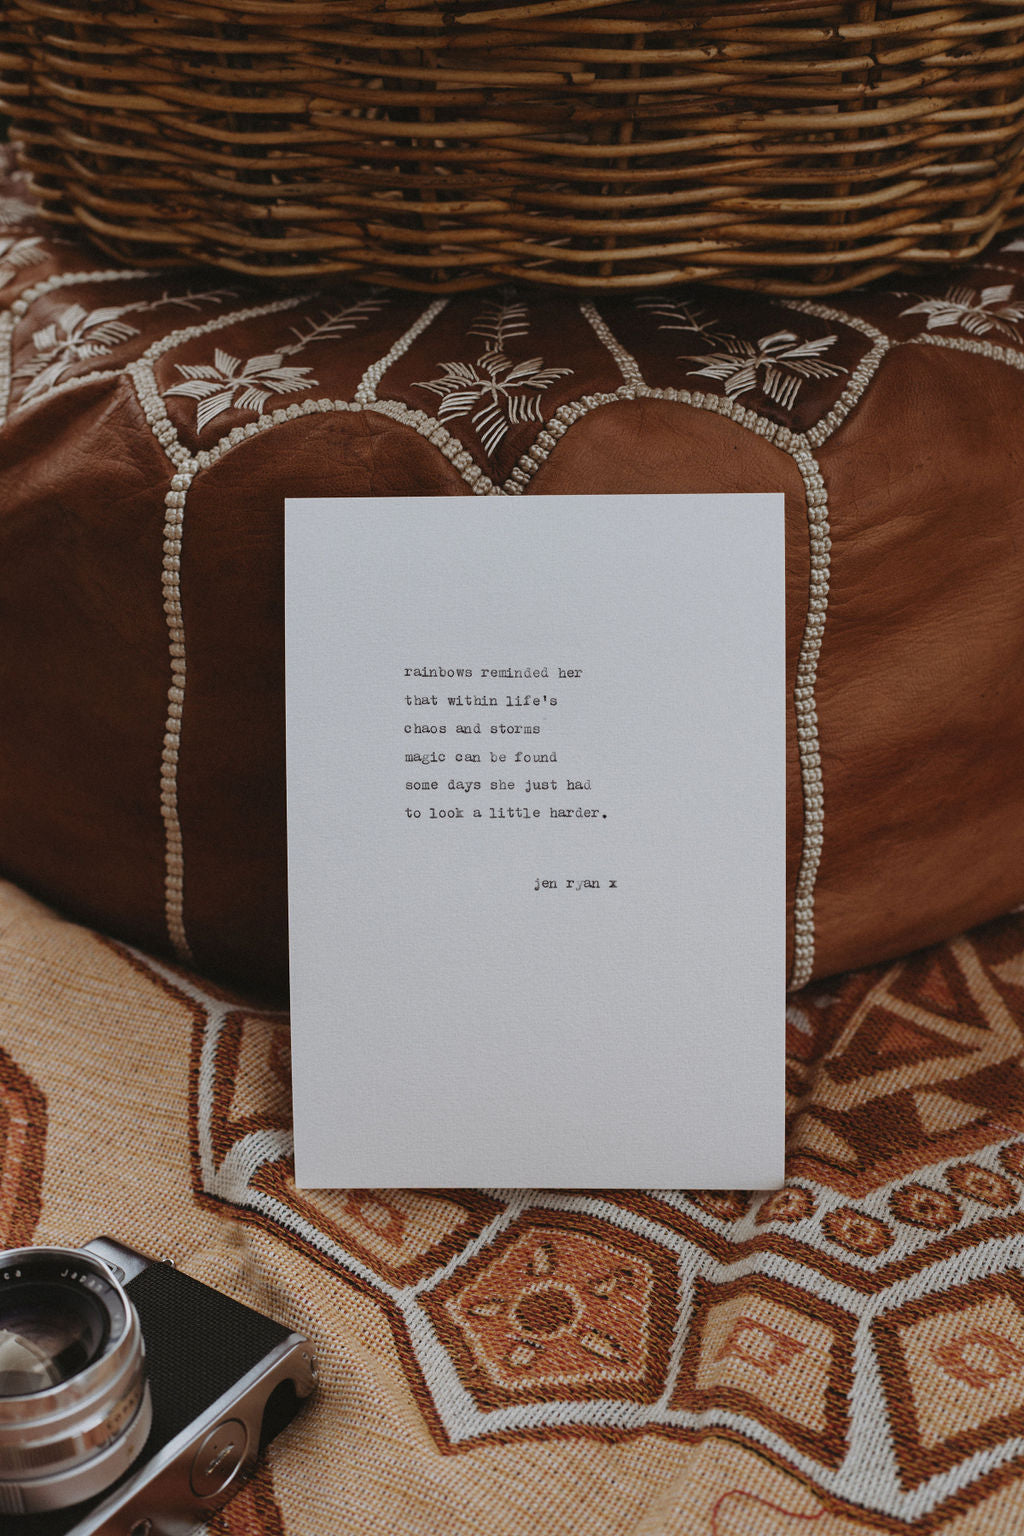 rainbows reminded her
that within life's
chaos and storms
magic can be found
some days she just had
to look a little harder.
jen ryan x